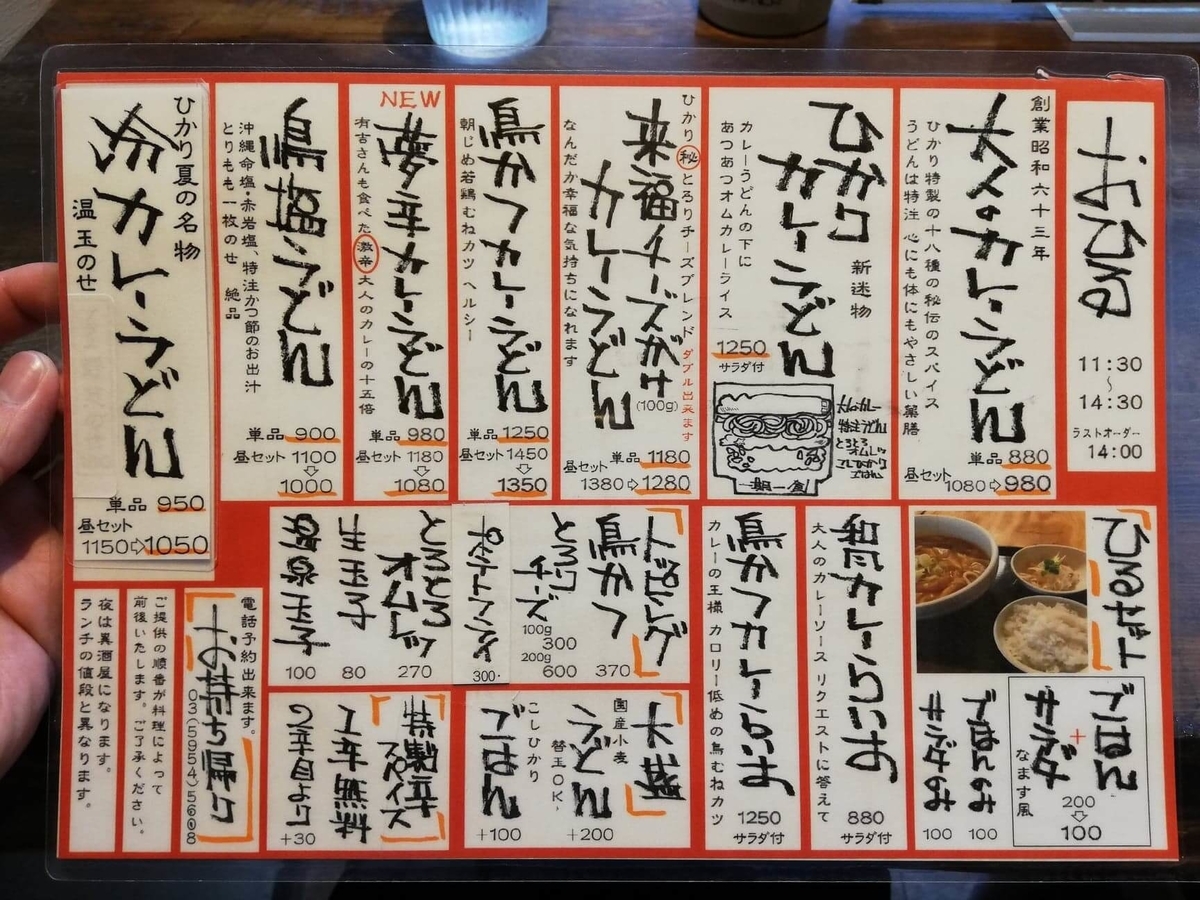 おひる
11:30
〜
14:30
ラストオーダー
14:00
創業昭和六十三年
大人のカレーうどん
ひかり特製の十八種の秘伝のスパイス
うどんは特注 心にも体にもやさしい薬膳
単品 880
昼セット 1080⇨980
新迷物
ひかり
カレーうどん
カレーうどんの下に
あつあつオムカレーライス
1250
サラダ付
大人のカレー
特注うどん
とろとろ
オムレツ
こしひかり
ごはん
一期一会
ひかり㊙とろりチーズブレンド ダブル出来ます
来福チーズがけ
(100g)
カレーうどん
なんだか幸福な気持ちになれます
単品 1180
昼セット
1380⇨1280
鳥かつカレーうどん
朝じめ若鶏むねカツ ヘルシー
単品 1250
昼セット 1450
⇩
1350
NEW
夢辛カレーうどん
有吉さんも食べた激辛大人のカレーの十五倍
単品 980
昼セット 1180
⇩
1080
鳥塩うどん
沖縄命塩・赤岩塩、特注かつ節のお出汁
とりもも一枚のせ 絶品
単品 900
昼セット 1100
⇩
1000
ひかり夏の名物
冷カレーうどん
温玉のせ
単品 950
昼セット
1150⇨1050
ひるせっと
ごはん
+
サラダ
なます風
200
⇩
100
ごはんのみ
100
サラダのみ
100
和風カレーらいす
大人のカレーソース リクエストに答えて
880
サラダ付
鳥かつカレーらいす
カレーの王様 カロリー低めの鳥むねカツ
1250
サラダ付
トッピング
鳥かつ
370
とろり
チーズ
100g
300
200g
600
300.
とろとろ
オムレツ
270
生玉子
80
温泉玉子
100
大盛
国産小麦
うどん
替玉OK、
+200
こしひかり
ごはん
+100
特製辛
スパイス
1辛無料
2辛目より
+30
電話予約出来ます。
お持ち帰り
03(5954)5608
ご提供の順番が料理によって
前後いたします。ご了承ください。
夜は異酒屋になります。
ランチの値段と異なります。